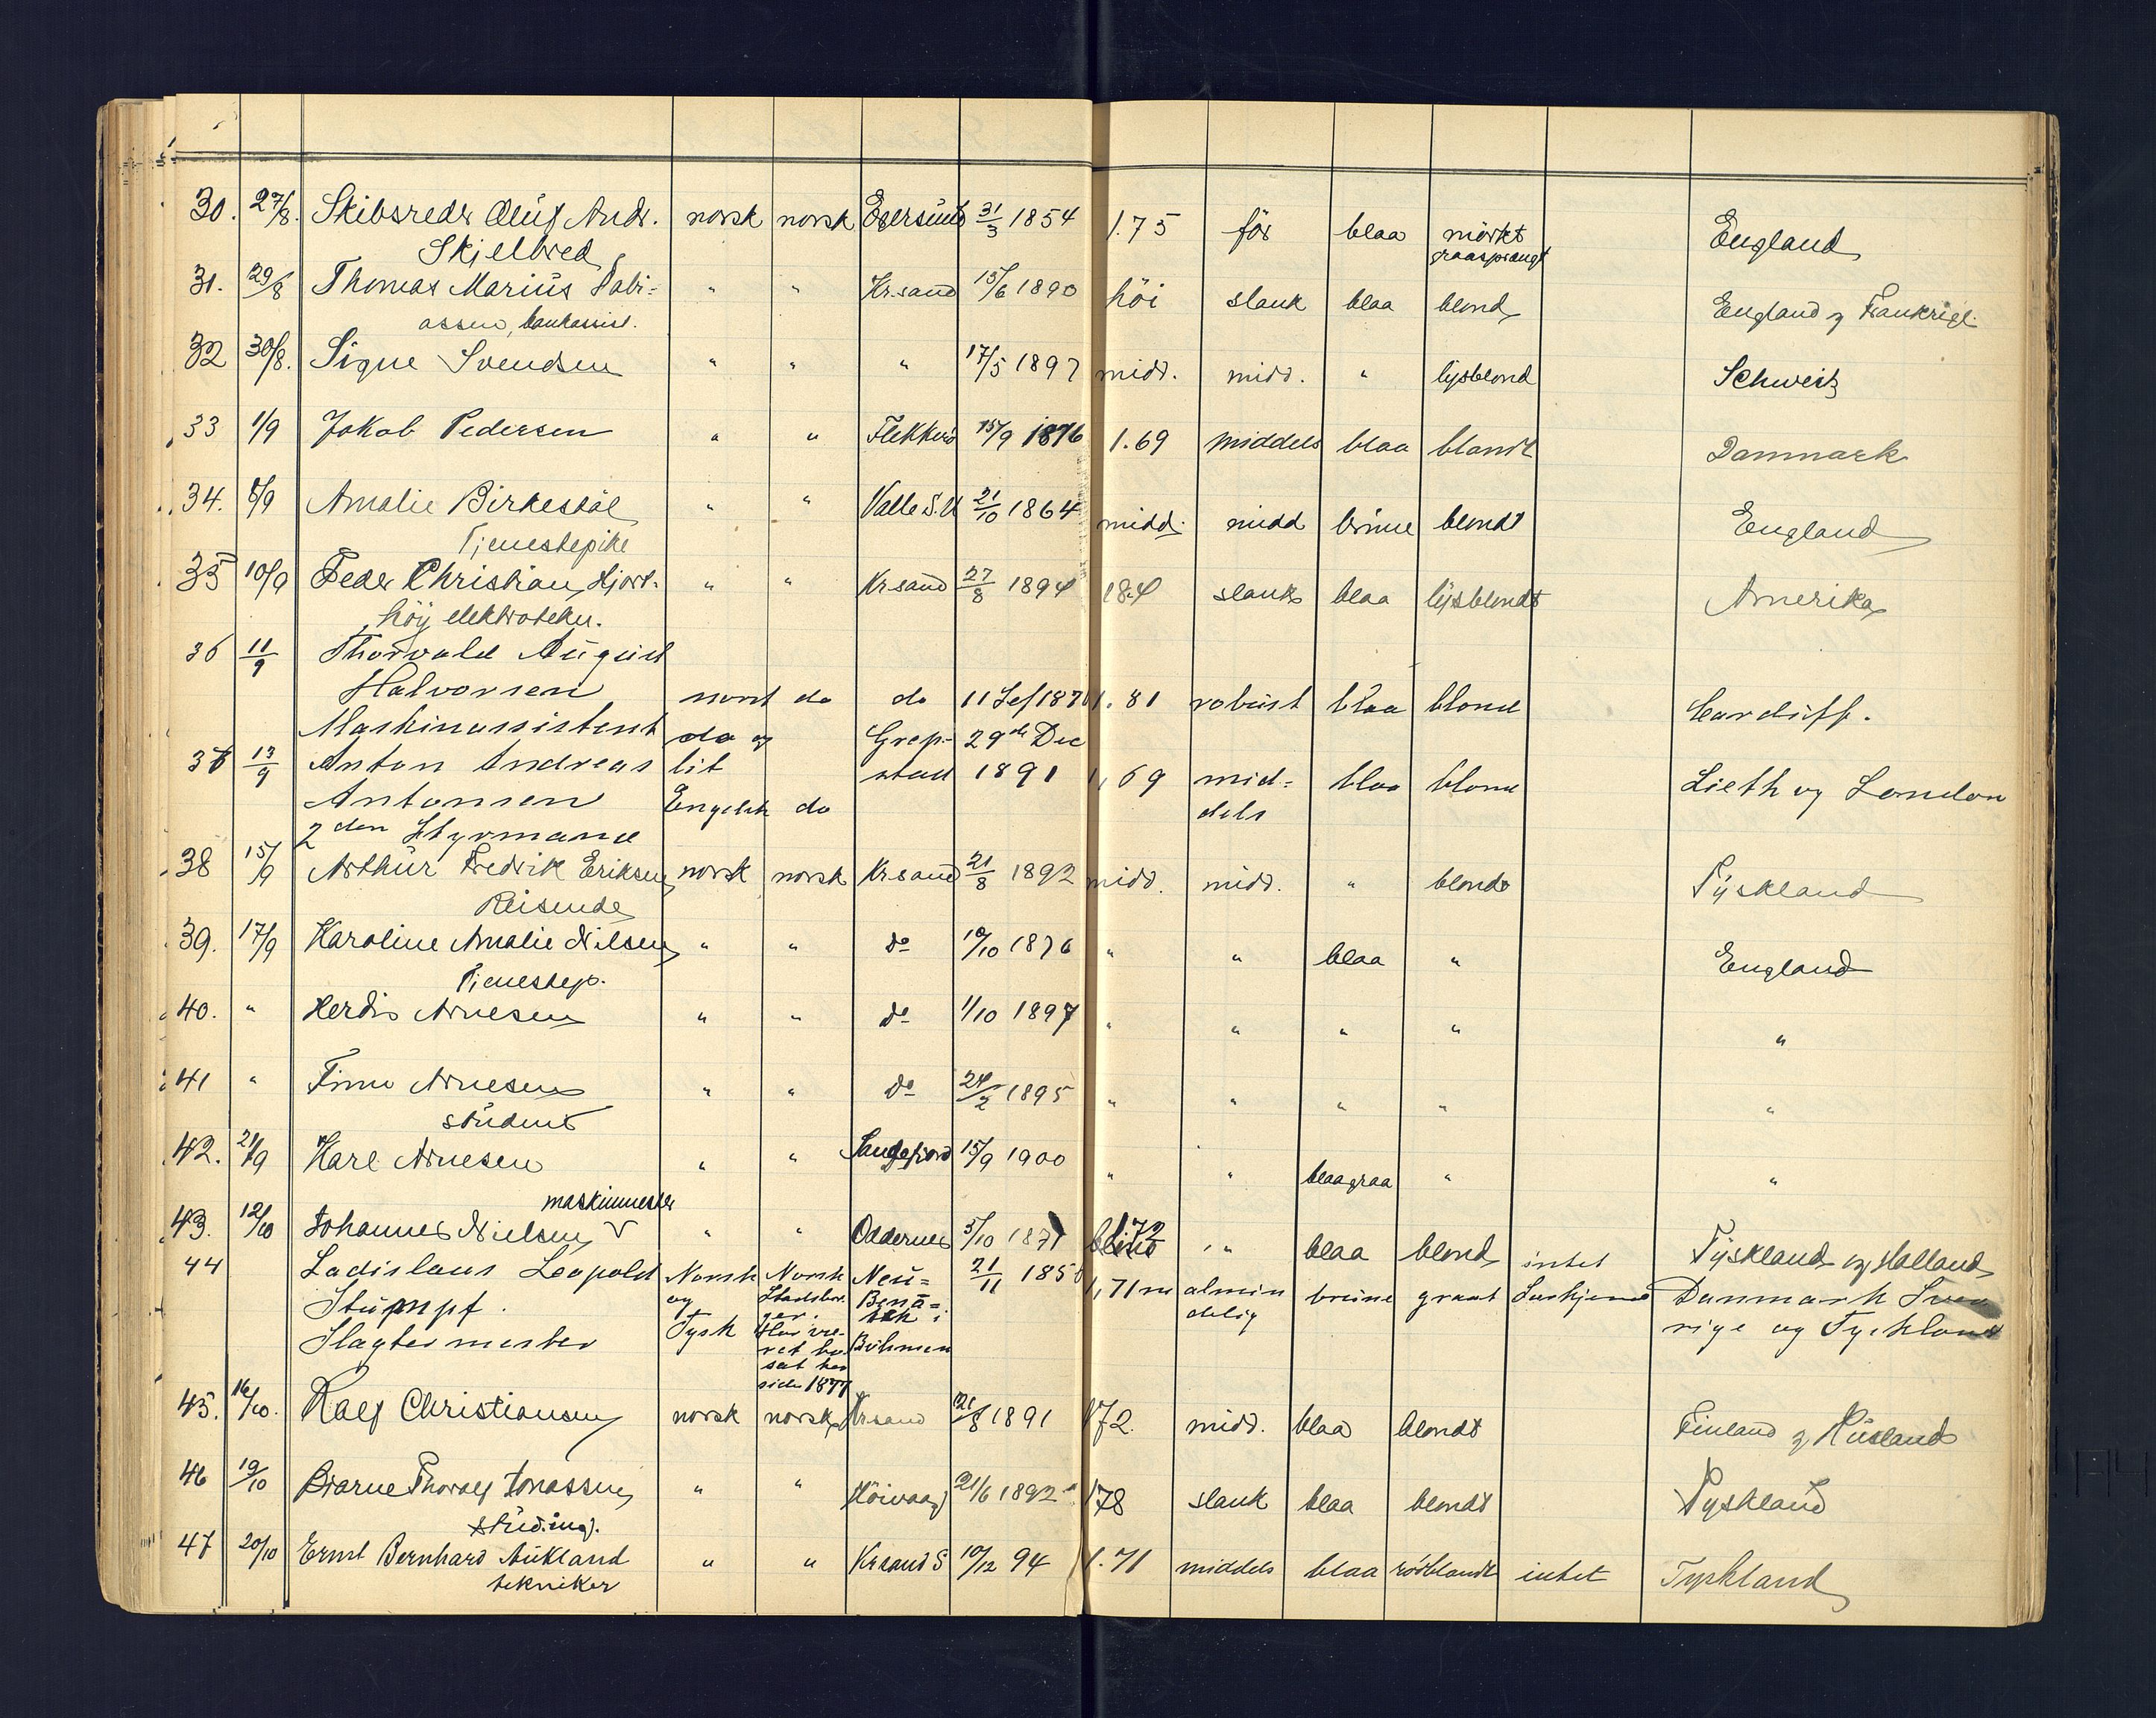 30. 27/8. Skibsreder Oluf Andr. norsk norsk Egersund 31/3 1854 1.75 för blaa mörkt England
Skjelbred graasprængt
31. 29/8 Thomas Marius Tabi= " " Kr.sand 15/6 1890 höi slank blaa blond England og Frankrige
assen, bankassist.
32 30/8. Signe Svendsen " " " 17/5 1897 midd. midd. " lysblond Schweitz
33 1/9 Jakob Pedersen " " Flekkerö 15/9 1876 1.69 middels blaa blondt Danmark
34. 8/9 Amalie Birkestöl " " Valle S. 21/10 1864 midd. midd brune blondt England
Tjenestepike
35 10/9 Peder Christian Hjort- " " Kr.sand 27/8 1894 1.84 slank blaa lysblondt Amerika
höy elektrotekn.
36 11/9 Thorvald August
Halvorsen norsk do do 11 Sep 187 1.81 robust blaa blond Cardiff.
Maskinassistent
37 13/9 Anton Andreas do og lit Grep- 29de Dec
Antonsen Engelsk do stad 1891 1,69 mid= dels blaa blond Lieth og London
2den Styrmand
38 15/9 Arthur Fredrik Eriksen norsk norsk Kr.sand 21/8 1892 midd. midd. " blondt Tyskland
Reisende
39. 17/9 Karoline Amalie Nilsen " " do 10/10 1876 " " blaa " England
Tjenestep.
40. " Herdis Arnesen " " do 1/10 1897 " " " " "
41 " Finn Arnesen " " do 24/2 1895 " " " " "
student
42. 21/9 Karl Arnesen " " Sandefjord 15/9 1900 " " blaagraa " "
maskinmester
43. 12/10 Johannes Nielsen V " " Oddernes 5/10 1871 172 " blaa blond intet Tyskland og Holland
44 Ladislaus Leopold Norsk Norsk Neu= 21/11 185 1,71 m almin brune graat Danmark Sve
Stumpf. og Statsbor- Benä= delig rige og Tyskland
Slagtermester Tysk ger. tek i
Har væ- Böhmen
ret bo-
sat her
siden 1877
45. 16/10. Ralf Christiansen norsk norsk Kr.sand 21/8 1891 172. midd. blaa blondt Finland og Rusland
46 19/10 Bjarne Thoralf Jonassen " " Höivaag 21/6 1892 178 slank blaa blondt Tyskland
stud.ing.
47 20/10 Ernst Bernhard Aukland " " Krsand S 10/12 94 1.71 middels blaa rödblondt intet Tyskland
tekniker